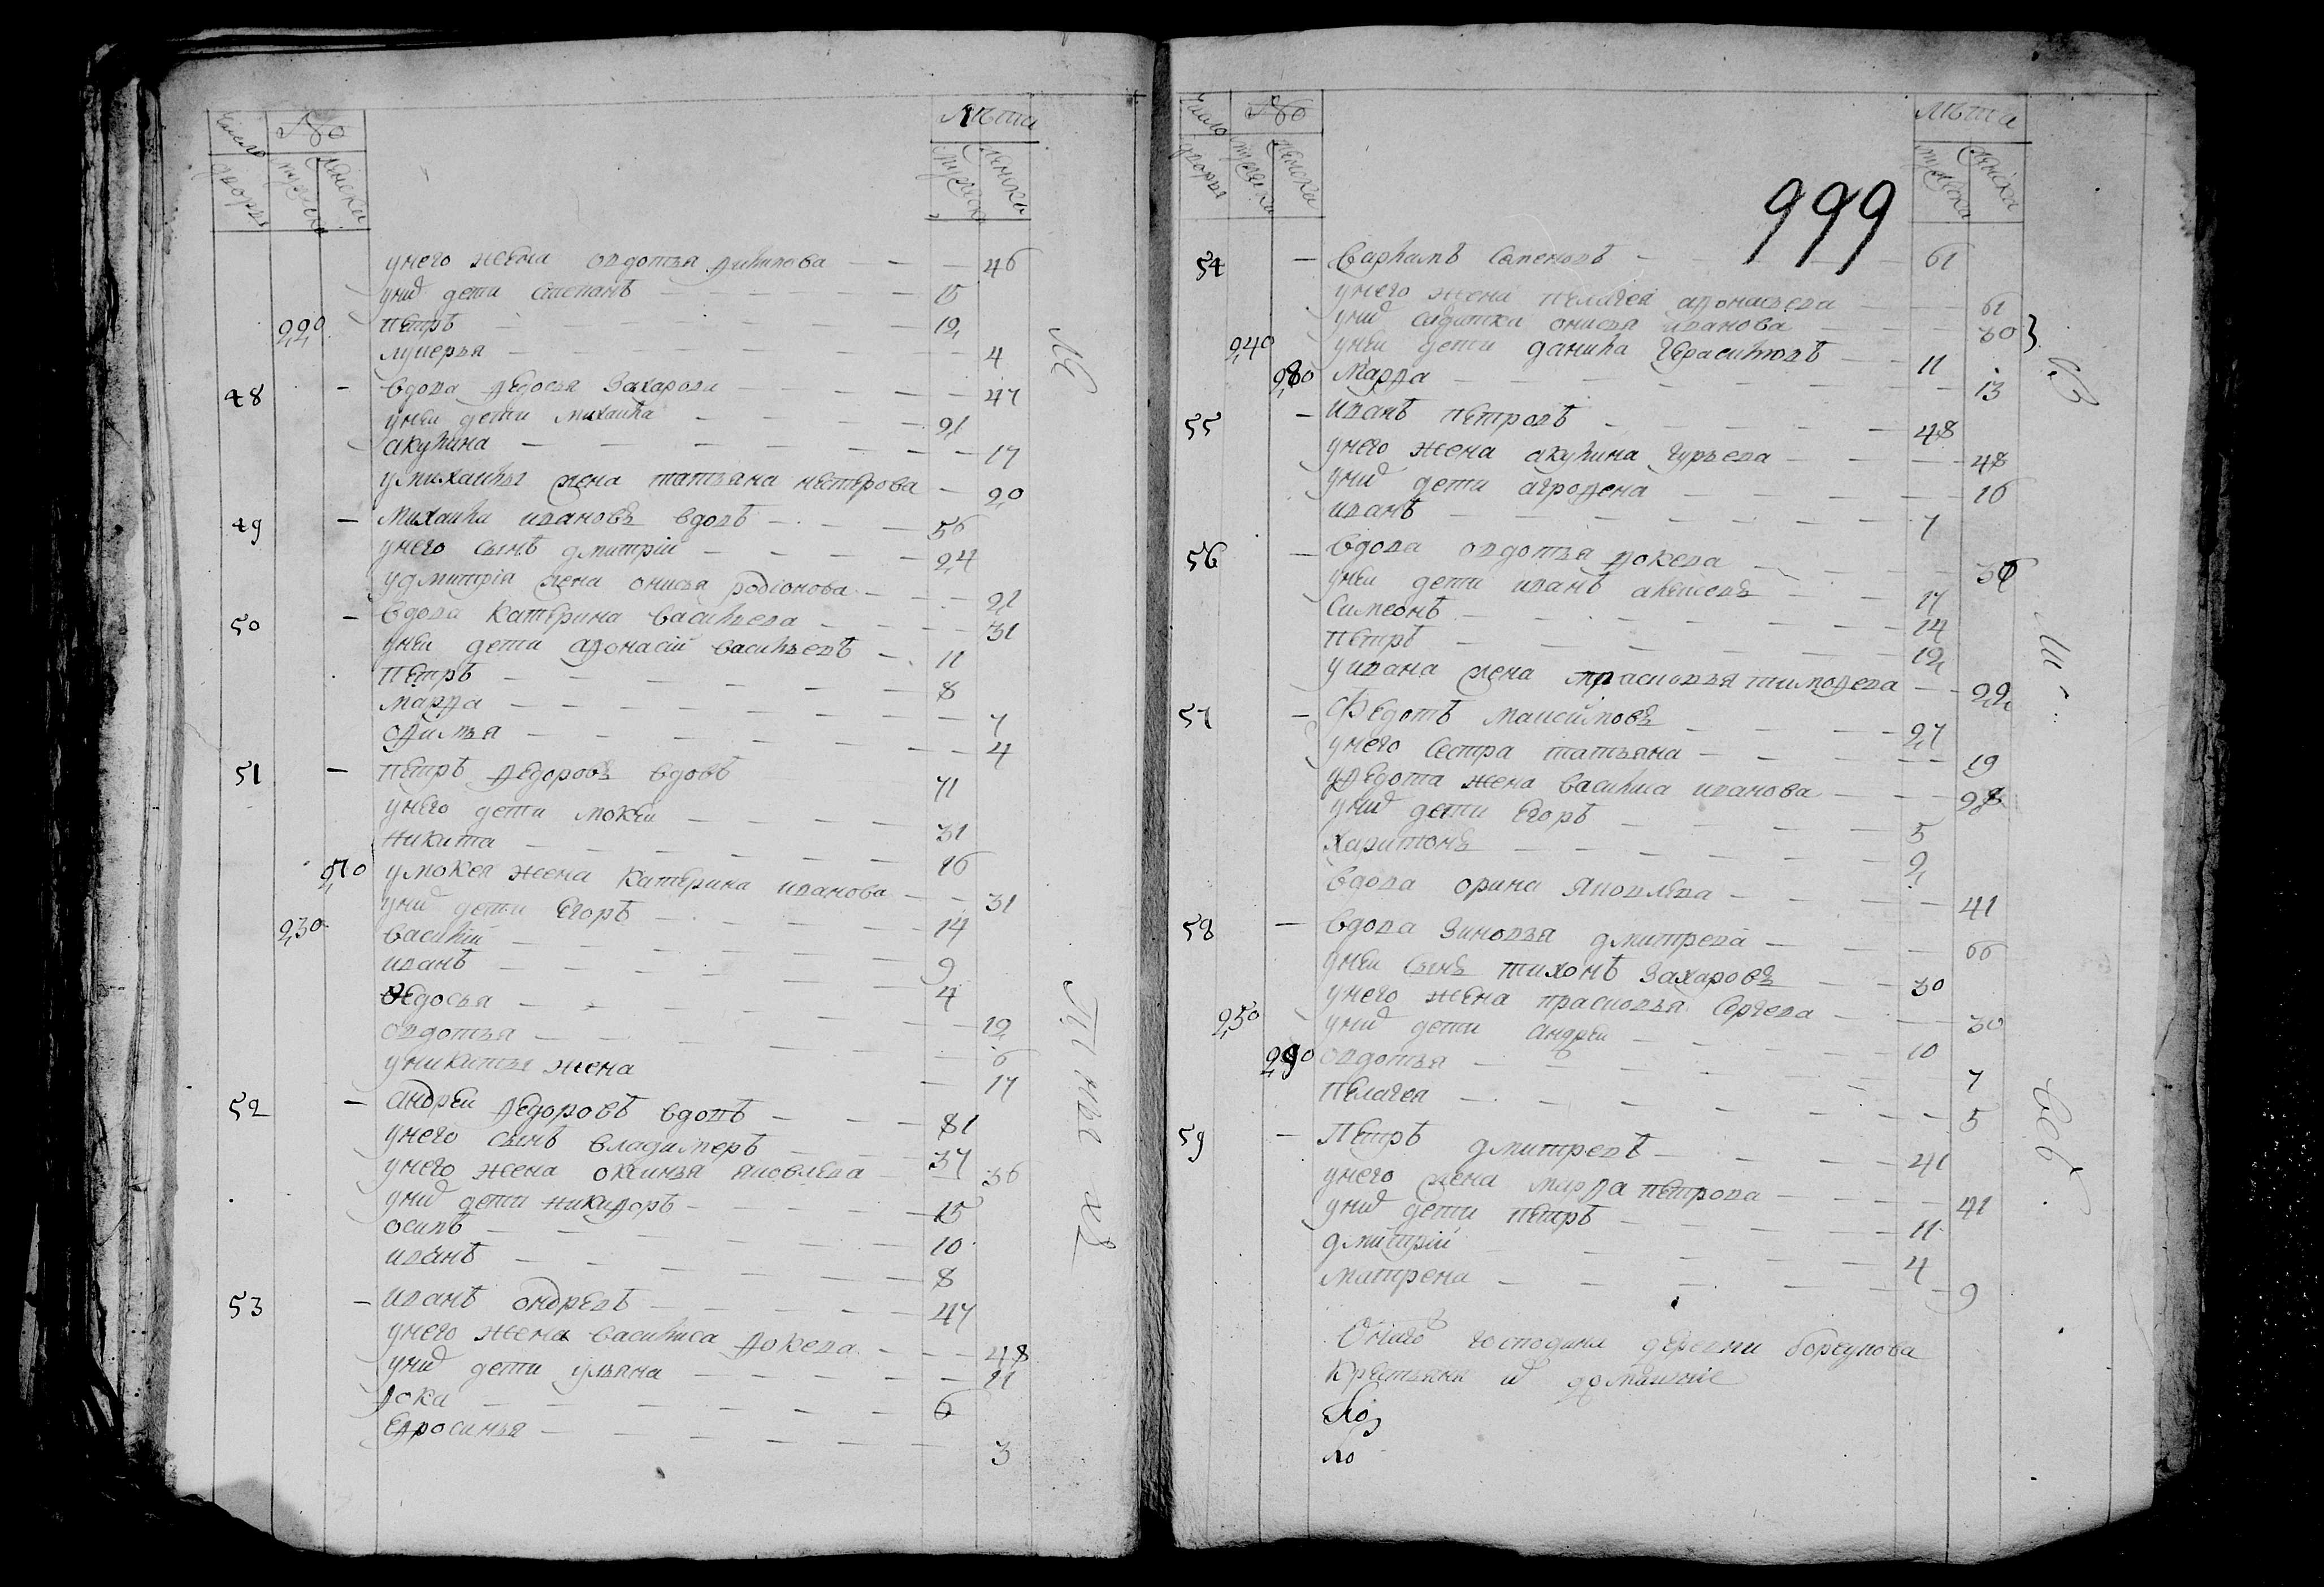 Число
дворъ
№
мужеска
женска
Лѣта
мужеска
женска
у него жена овдотья филипова 46
у них дети степанъ 15
220 петръ 12
лукерья 4
48 вдова федосья захарова 47
у неи дети михаила 21
акулина 17
у михаилы жена татьяна петрова 20
49 михаила ивановъ вдовъ 56
у него сынъ дмитрiй 24
у дмитрiя жена онисья родiонова 21
50 вдова катерина васильева 31
у неи дети афонасiй васильевъ 11
петръ 8
марфа 7
офимья 4
51 петръ федоровъ вдовъ 71
у него дети мокеи 31
никита 16
270 у мокея жена катерина иванова 31
у них дети егоръ 14
230 василiй 9
иванъ 4
федосья 12
овдотья 6
у никиты жена 17
52 андреи федоровъ вдовъ 81
у него сынъ владимеръ 37
у него жена оксинья яковлева 36
у них дети никифоръ 15
осипъ 10
иванъ 8
53 иванъ ондревъ 47
у него жена василиса фокева 48
у них дети ульяна 11
фока 6
ефросинья 3
Число
дворъ
№
мужеска
женска
999
Лѣта
мужеска
женска
54 варламъ семеновъ 61
у него жена пелагея афонасьева 61
у них онисья иванова 30
240 у неи дети данила герасимовъ 11
280 марфа 13
55 иванъ петровъ 48
у него жена акулина гурьева 48
у них дети агрофена 16
иванъ 7
56 вдова овдотья фокева
у неи дети иванъ алексевъ 17
симеонъ 14
петръ 12
у ивана жена прасковья тимофева 22
57 Федотъ максимовъ 27
у него сестра татьяна 19
у федота жена василиса иванова 28
у них дети егоръ 5
харитонъ 2
вдова орина яковлева 41
58 вдова зиновья дмитрева 66
у неи сынъ тихонъ захаровъ 30
у него жена прасковья сергева 30
250 у них дети андреи 10
290 овдотья 7
пелагея 5
59 Петръ дмитревъ 41
у него жена марфа петрова 41
у них дети петръ 11
дмитрiй 4
матрена 9
Онаго господина деревни
крестьяня и домашние